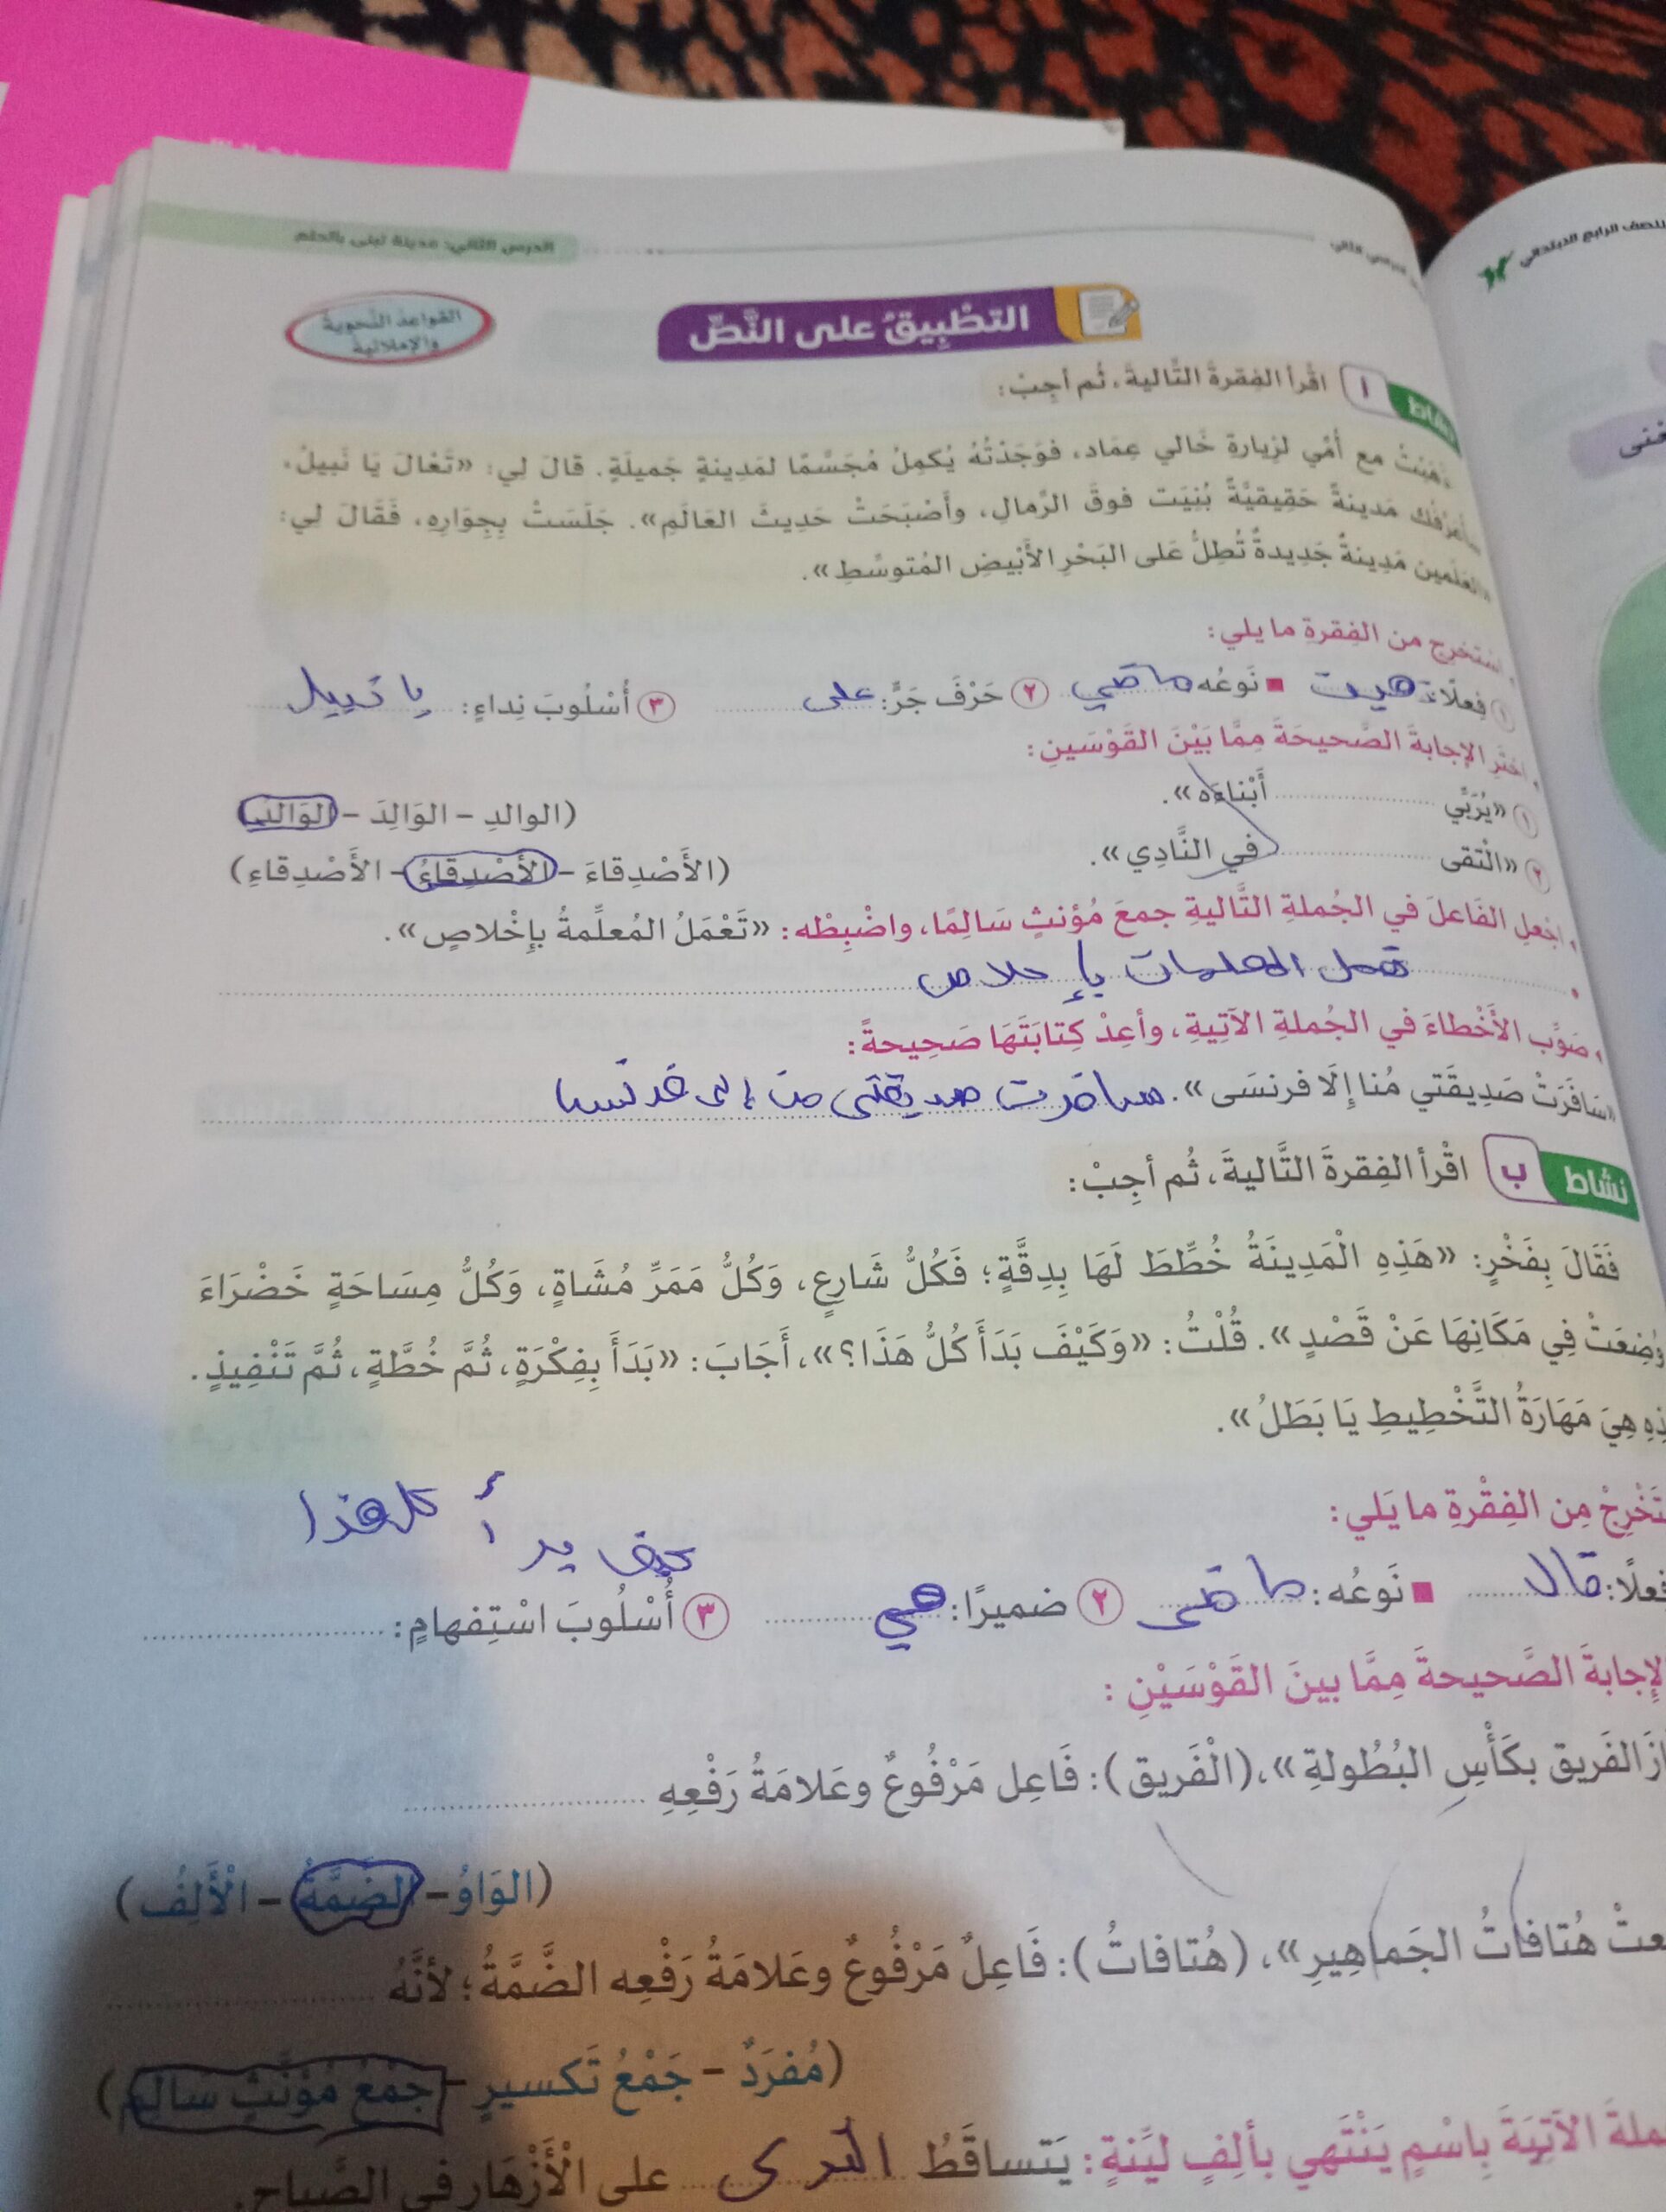 للصف الرابع الابتدائي
الدرس الثاني: مدينة تبنى بالحلم
التطْبِيقُ على النَّصِّ
القواعدُ النَّحويةُ
والإملائيةُ
نشاط أ اقْرأ الفِقرةَ التَّاليةَ، ثُم أجِبْ:
ذَهَبْتُ مع أُمِّي لزِيارةِ خَالي عِمَاد، فوَجَدْتُهُ يُكمِلُ مُجَسَّمًا لمَدِينةٍ جَميلَةٍ. قالَ لِي: «تَعَالَ يَا نَبيلُ،
سأُعَرِّفُك مَدينةً حَقِيقيَّةً بُنِيَت فوقَ الرِّمالِ، وأَصْبَحَتْ حَدِيثَ العَالَمِ». جَلَسَتْ بِجِوَارِهِ، فَقَالَ لِي:
«العَلَمين مَدِينةٌ جَدِيدةٌ تُطِلُّ عَلى البَحْرِ الأَبْيضِ المُتوسِّطِ».
استخرِج من الفِقرةِ ما يلي:
١ فِعلًا: ذهبت ■ نَوعُه ماضي ٢ حَرْفَ جَرٍّ: على ٣ أُسْلُوبَ نِداءٍ: يا نبيل
اختَرِ الإجابةَ الصَّحيحَةَ مِمَّا بَيْنَ القَوْسَينِ:
١ «يُرَبِّي أَبْناءَه». (الوالدِ – الوَالِدَ – الوَالدُ)
٢ «الْتقى في النَّادِي». (الأَصْدِقاءَ – الأَصْدِقاءُ – الأَصْدِقاءِ)
اجعلِ الفَاعلَ في الجُملةِ التَّاليةِ جمعَ مُؤنثٍ سَالِمًا، واضْبِطْه: «تَعْمَلُ المُعلِّمةُ بِإِخْلاصٍ».
تعمل المعلمات بإخلاص
صَوِّب الأَخْطاءَ في الجُملةِ الآتِيةِ، وأعِدْ كِتابَتَهَا صَحِيحةً:
«سَافَرَتْ صَدِيقَتي مُنا إِلَا فرنسَى». سافرت صديقتى منى إلى فرنسا
نشاط ب اقْرأ الفِقرةَ التَّاليةَ، ثُم أجِبْ:
فَقَالَ بِفَخْرٍ: «هَذِهِ الْمَدِينَةُ خُطِّطَ لَهَا بِدِقَّةٍ؛ فَكُلُّ شَارِعٍ، وَكُلُّ مَمَرِّ مُشَاةٍ، وَكُلُّ مِسَاحَةٍ خَضْرَاءَ
وُضِعَتْ فِي مَكَانِهَا عَنْ قَصْدٍ». قُلْتُ: «وَكَيْفَ بَدَأَ كُلُّ هَذَا؟»، أَجَابَ: «بَدَأَ بِفِكْرَةٍ، ثُمَّ خُطَّةٍ، ثُمَّ تَنْفِيذٍ.
ذِهِ هِيَ مَهَارَةُ التَّخْطِيطِ يَا بَطَلُ».
تَخْرِجْ مِن الفِقْرةِ ما يَلي:
كيف بدأ كل هذا
فعلًا: قال ■ نَوعُه: ماضى ٢ ضميرًا: هي ٣ أُسْلُوبَ اسْتِفهامٍ:
لإجابةَ الصَّحيحةَ مِمَّا بينَ القَوْسَيْنِ:
ازَ الفَريق بكَأْسِ البُطُولةِ»، (الْفَريق): فَاعِل مَرْفُوعٌ وعَلامَةُ رَفْعِهِ
(الوَاوُ – الضَّمَّةُ – الْأَلِفُ)
عتْ هُتافاتُ الجَماهِيرِ»، (هُتافاتُ): فَاعِلٌ مَرْفُوعٌ وعَلامَةُ رَفْعِه الضَّمَّةُ؛ لأنَّهُ
(مُفرَدٌ – جَمْعُ تَكسيرٍ – جَمْعُ مُؤَنَّثٍ سَالِمٌ)
ملةَ الآتِيَةَ بِاسْمٍ يَنْتَهي بألِفٍ ليِّنةٍ: يَتساقَطُ الندى على الْأَزْهَارِ في الصَّباحِ.